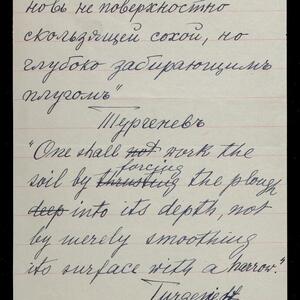 новь не поверхностно
скользящей сохой, но
глубоко забирающимъ
плугомъ"
Тургеневъ
"One shall not work the
forcing
soil by thrusting the plough
deep into its depth, not
by merely smoothing
its surface with a harrow."
Turgenieff